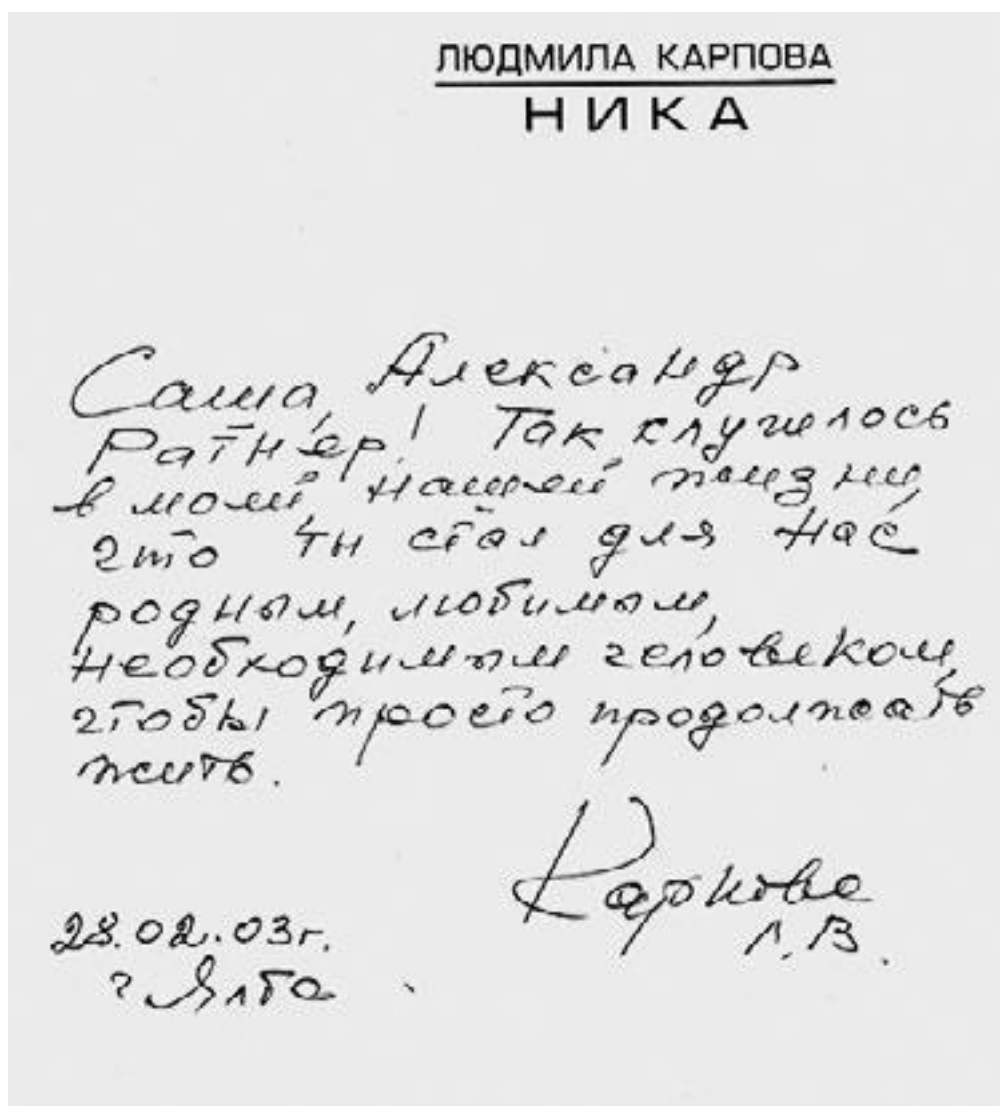 ЛЮДМИЛА КАРПОВА
НИКА
Саша, Александр
Ратнер! Так случилось
в моей, нашей жизни,
что ты стал для нас
родным, любимым,
необходимым человеком,
чтобы просто продолжать
жить.
Карпова
Л.В.
28.02.03г.
г. Ялта